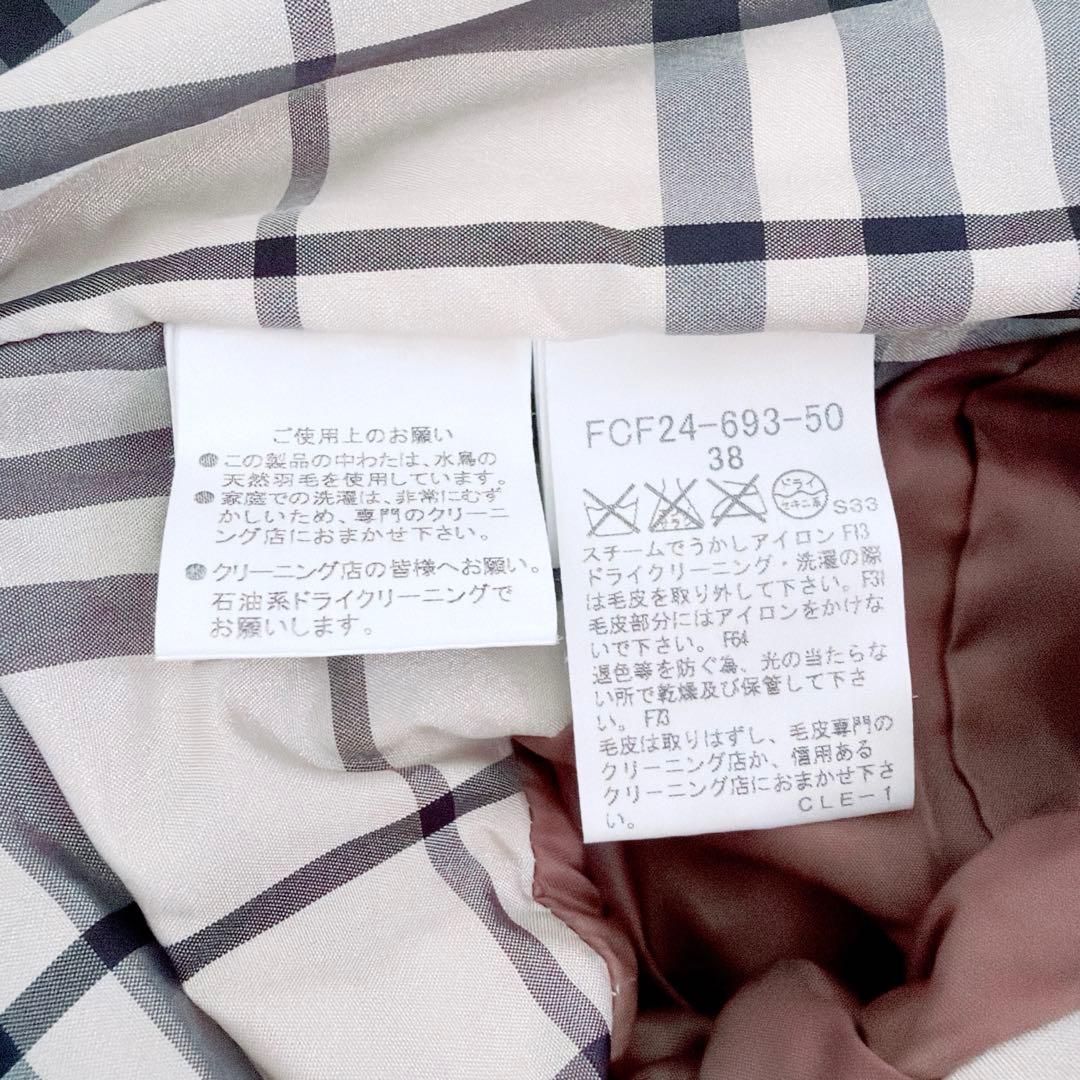 ご使用上のお願い
●この製品の中わたは、水鳥の
天然羽毛を使用しています。
●家庭での洗濯は、非常にむず
かしいため、専門のクリーニ
ング店におまかせ下さい。
●クリーニング店の皆様へお願い。
石油系ドライクリーニングで
お願いします。
FCF24-693-50
38
ドライ
セキユ系
S33
スチームでうかしアイロン F13
ドライクリーニング・洗濯の際
は毛皮を取り外して下さい。F31
毛皮部分にはアイロンをかけな
いで下さい。F64
退色等を防ぐ為、光の当たらな
い所で乾燥及び保管して下さ
い。F73
毛皮は取りはずし、毛皮専門の
クリーニング店か、信用ある
クリーニング店におまかせ下さ
い。
CLE-1